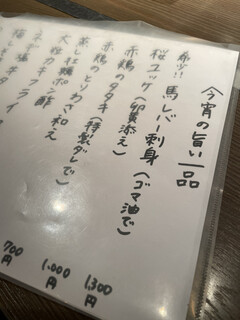 今宵の旨い一品
希少!! 馬レバー刺身(ゴマ油で)
桜ユッケ(卵黄添え)
赤鶏のタタキ(特製ダレで)
赤鶏のとりわさ和え
蒸し牡蠣ポン酢
大粒カキフライ
1,300円
1,000円
700円